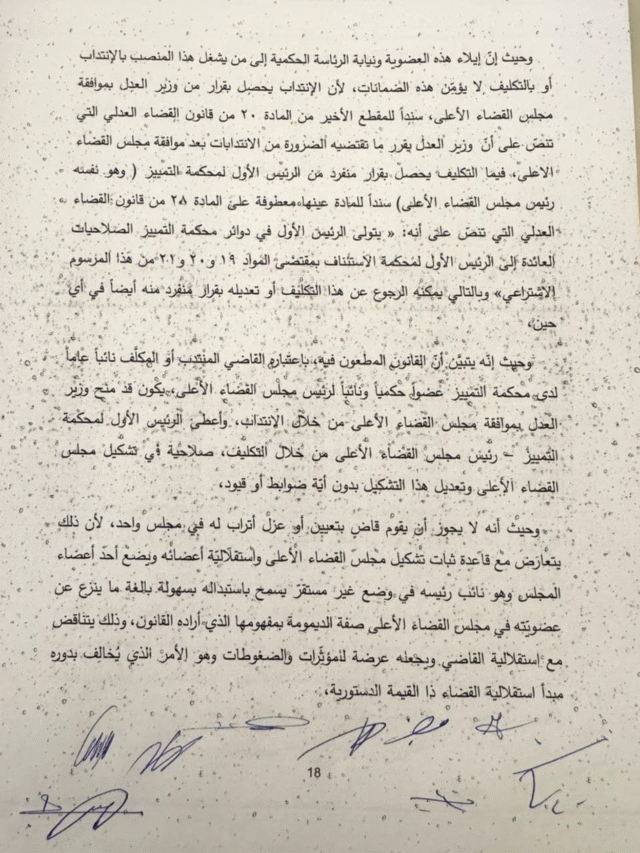 وحيث إنّ إيلاء هذه العضوية ونيابة الرئاسة الحكمية إلى من يشغل هذا المنصب بالإنتداب
أو بالتكليف لا يؤمّن هذه الضمانات، لأن الإنتداب يحصل بقرار من وزير العدل بموافقة
مجلس القضاء الأعلى، سنداً للمقطع الأخير من المادة ٢٠ من قانون القضاء العدلي التي
تنصّ على أنّ وزير العدل يقرر ما تقتضيه الضرورة من الانتدابات بعد موافقة مجلس القضاء
الاعلى، فيما التكليف يحصل بقرار منفرد من الرئيس الأول لمحكمة التمييز ( وهو نفسه
رئيس مجلس القضاء الأعلى) سنداً للمادة عينها معطوفة على المادة ٢٨ من قانون القضاء
العدلي التي تنصّ على أنه: « يتولى الرئيس الأول في دوائر محكمة التمييز الصلاحيات
العائدة إلى الرئيس الأول لمحكمة الاستئناف بمقتضى المواد ١٩ و٢٠ و٢٢ من هذا المرسوم
الاشتراعي» وبالتالي يمكنه الرجوع عن هذا التكليف أو تعديله بقرار منفرد منه أيضاً في أي
حين،
وحيث إنّه يتبيّن أنّ القانون المطعون فيه، باعتباره القاضي المنتدب أو المكلّف نائباً عاماً
لدى محكمة التمييز عضواً حكمياً ونائباً لرئيس مجلس القضاء الأعلى، يكون قد منح وزير
العدل بموافقة مجلس القضاء الأعلى من خلال الانتداب، وأعطى الرئيس الأول لمحكمة
التمييز – رئيس مجلس القضاء الأعلى من خلال التكليف، صلاحية في تشكيل مجلس
القضاء الأعلى وتعديل هذا التشكيل بدون أيّة ضوابط أو قيود،
وحيث أنه لا يجوز أن يقوم قاضٍ بتعيين أو عزل أتراب له في مجلس واحد، لأن ذلك
يتعارض مع قاعدة ثبات تشكيل مجلس القضاء الأعلى واستقلاليّة أعضائه ويضع أحد أعضاء
المجلس وهو نائب رئيسه في وضع غير مستقرّ يسمح باستبداله بسهولة بالغة ما ينزع عن
عضويّته في مجلس القضاء الأعلى صفة الديمومة بمفهومها الذي أراده القانون، وذلك يتناقض
مع استقلالية القاضي ويجعله عرضة للمؤثّرات والضغوطات وهو الأمر الذي يُخالف بدوره
مبدأ استقلالية القضاء ذا القيمة الدستورية،
18